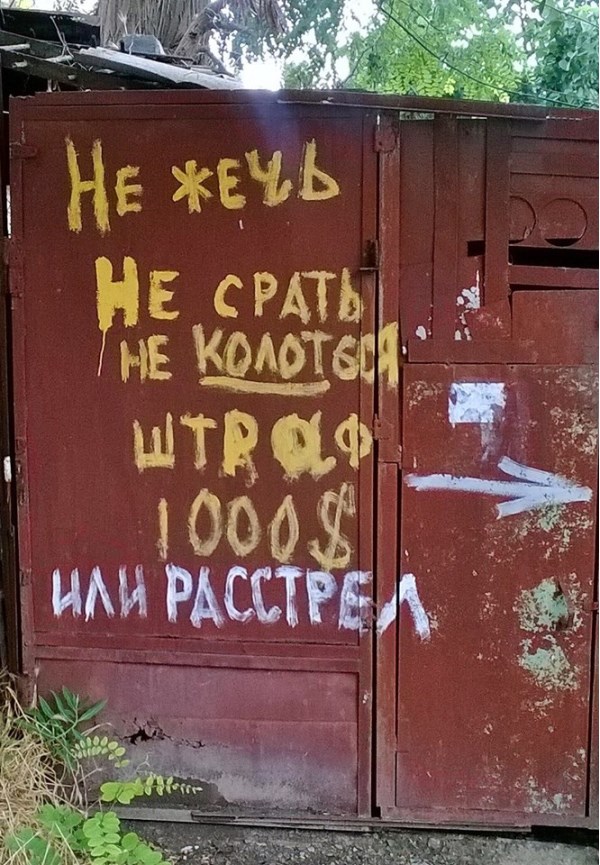 Не жечь
Не срать
не колоться
штраф
1000$
или расстрел